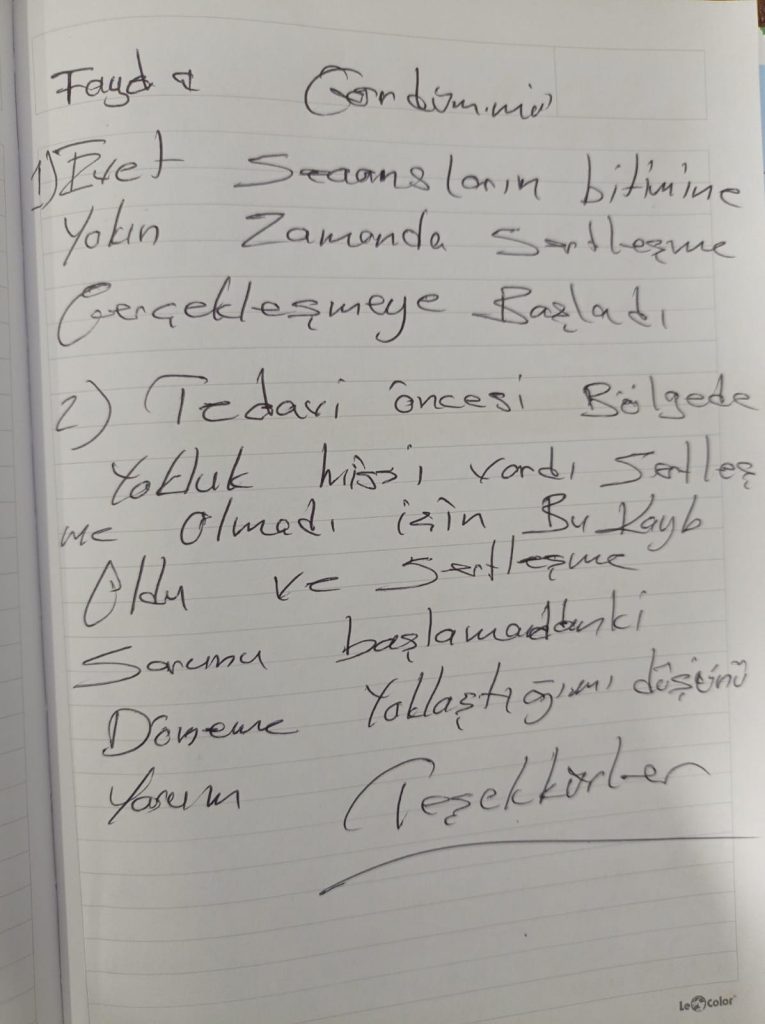 Fayda Gördümmü
1) Evet Seaansların bitimine
Yakın Zamanda Sertleşme
Gerçekleşmeye Başladı
2) Tedavi öncesi Bölgede
Yokluk hissi vardı Sertleş
me olmadı için Bu Kayb
Oldu ve Sertleşme
Sorunu başlamadanki
Döneme Yaklaştığımı düşünü
Yorum Teşekkürler
Le color